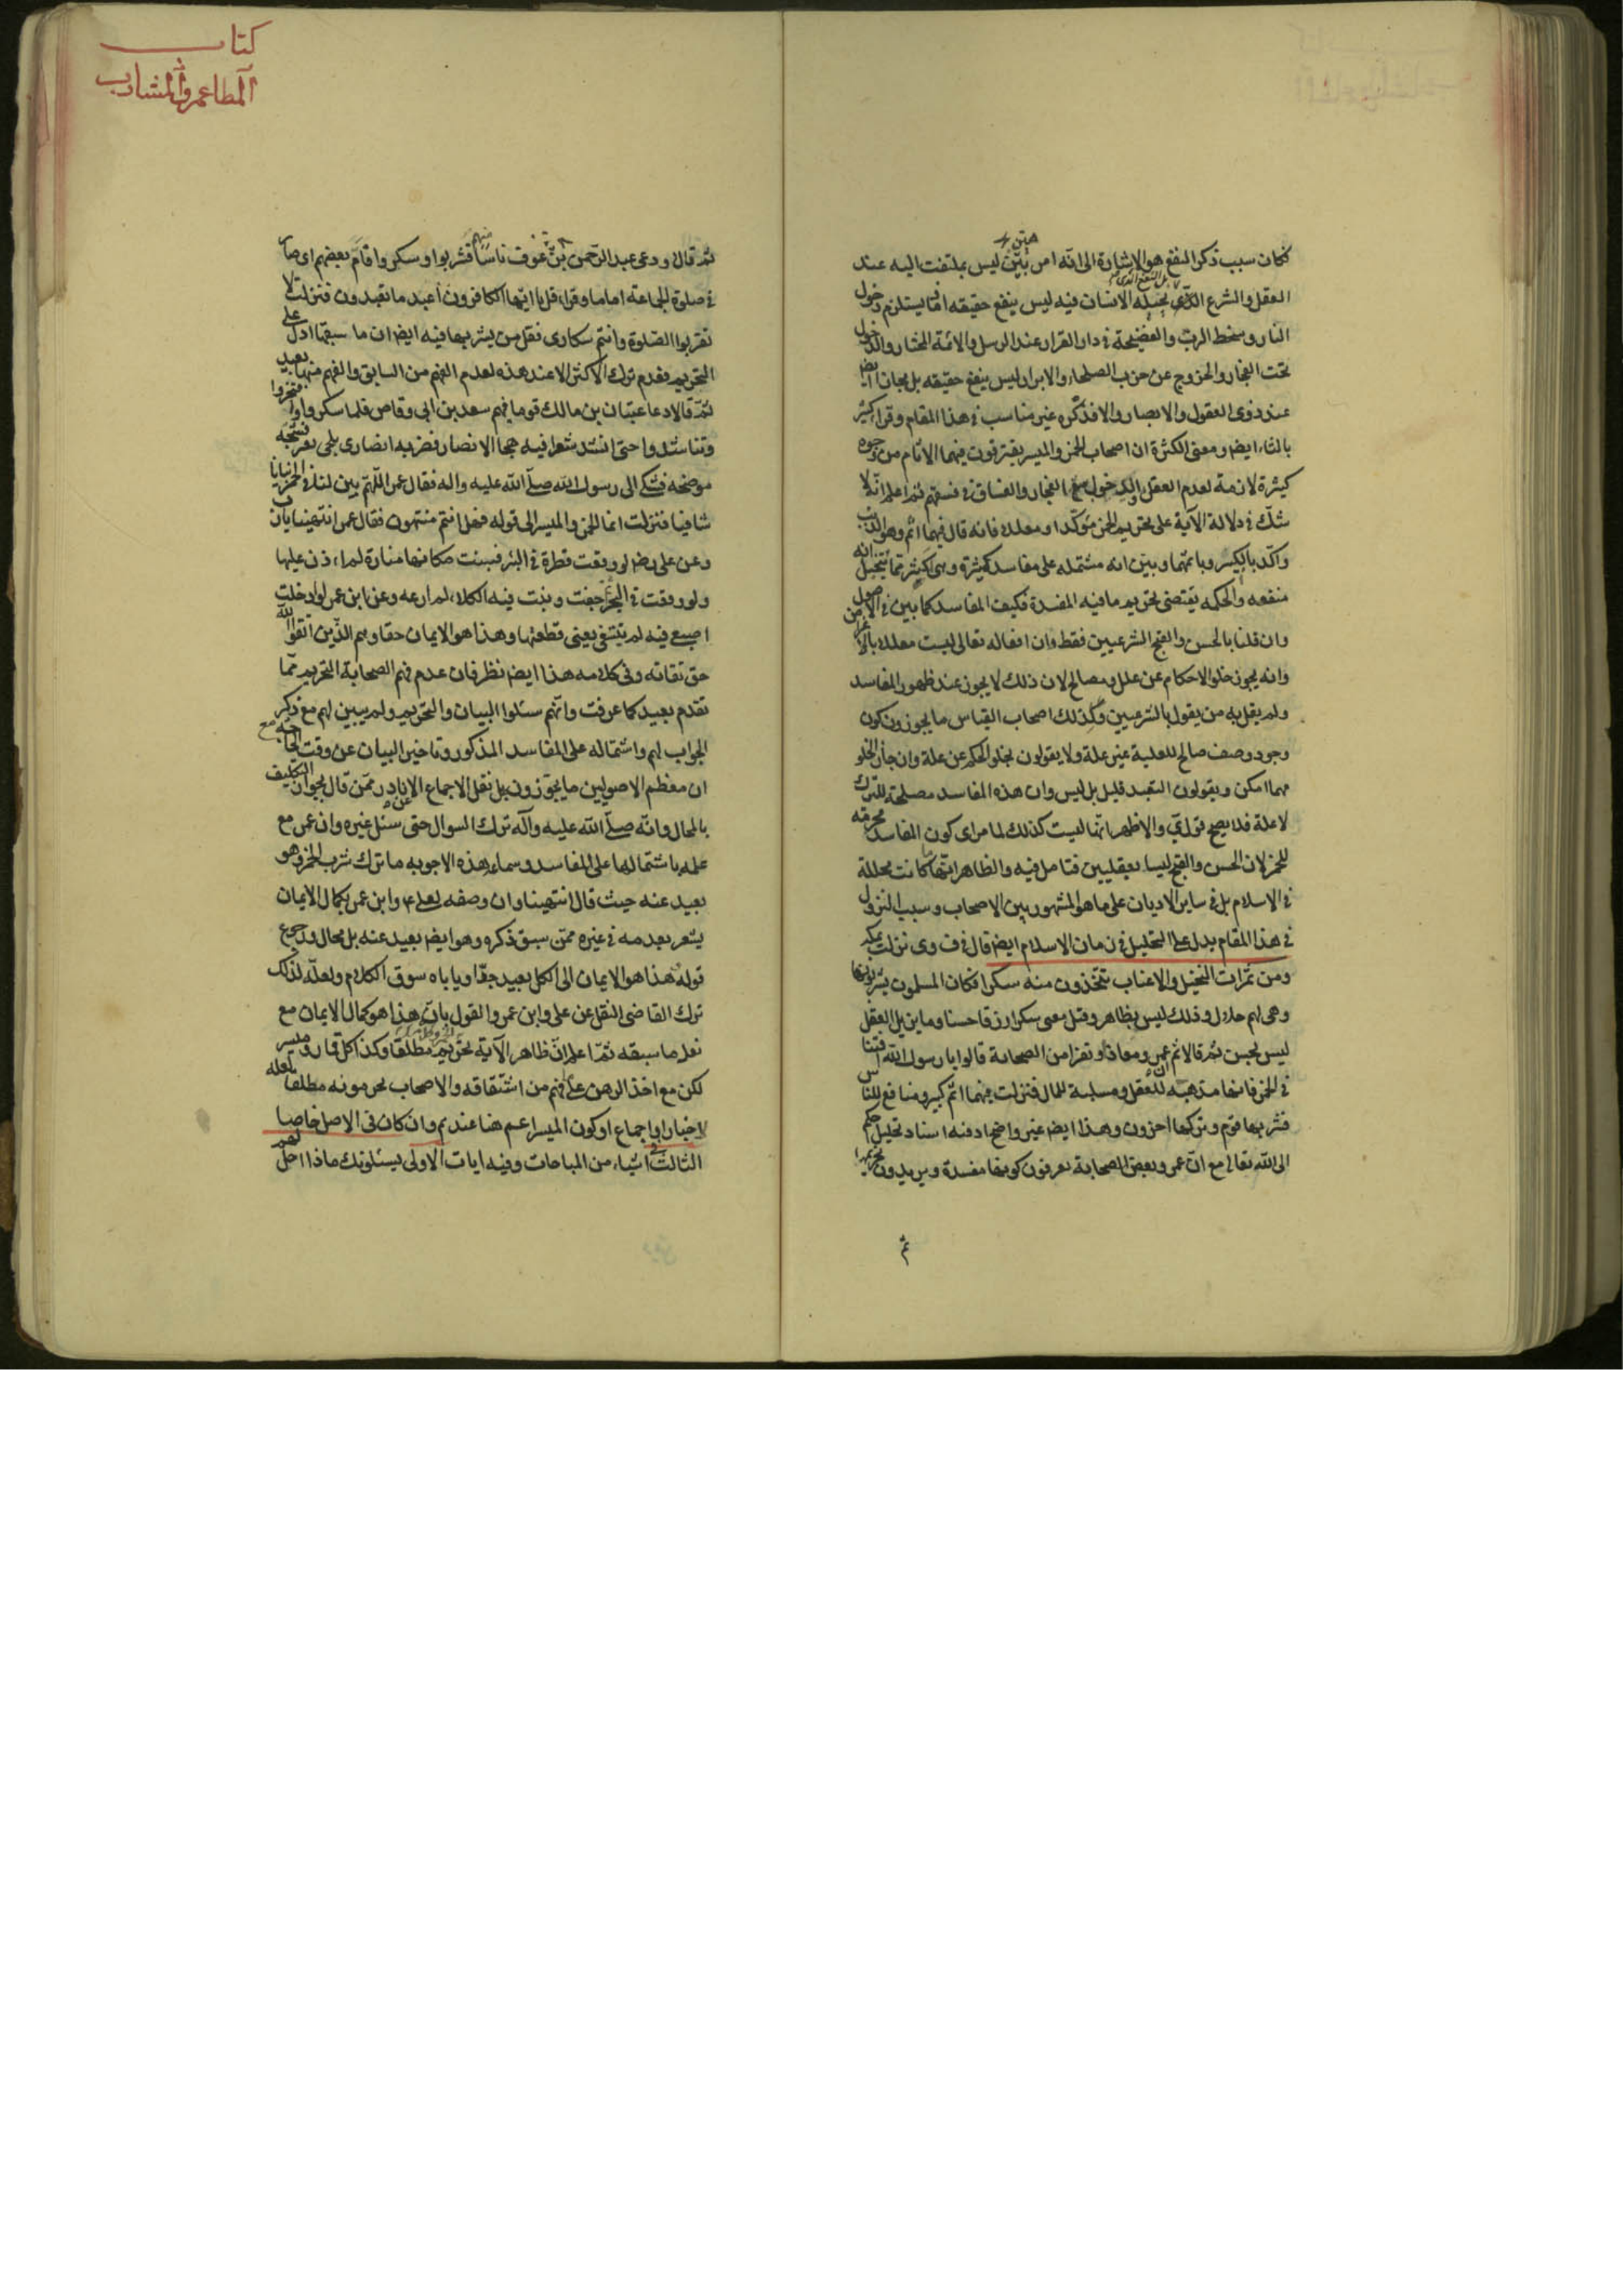 فكان سبب ذكر النفع هو الاشارة الى انه امر بيّن ليس بملتفت اليه عند
العقل والشرع الذى يحيله الانسان فيه ليس ينفع حقيقه انما يستلزم دخول
النار وسخط الربّ والفضيحة فى دار القرار عند الرسل والائمة المختار والدخول
تحت الفجار والخروج عن حزب الصلحاء والابرار ليس ينفع حقيقه بل مجازا ايض
عند ذوى العقول والابصار والا فذكره غير مناسب فى هذا المقام وقرا كثير
بالثاء ايض ومعنى الكثرة ان اصحاب الخمر والميسر يقترفون فيهما الاثام من وجوه
كثيرة لازمة لعدم العقل والدخول مع الفجار والفساق فى فسقهم ثم اعلم انه لا
شك فى دلالة الآية على تحريم الخمر مؤكدا ومعللا فانه قال فيهما اثم وهو الذنب
واكّد بالكبير وباعتهما وبين انه مشتمله على مفاسد كثيرة وهى اكثر مما يتخيل انه
منفعه والحكمه يقتضى تحريم ما فيه المفسدة فكيف المفاسد كما بين فى الاصول
وان قلنا بالحسن والقبح الشرعيين فقط وان افعاله تعالى ليست معلله بالاغراض
وانه يجوز خلو الاحكام عن علل ومصالح لان ذلك لا يجوز عند ظهور المفاسد
ولم يقل به من يقول بالشرعيين وكذلك اصحاب القياس ما يجوزون كون
وجود وصف صالح للعلية غير علة ولا يقولون بخلو الحكم عن علة وان جاز الخلو
مهما امكن ويقولون التعبد قليل بل ليس وان هذه المفاسد مصلحة للترك
لا علة فلا يصح قول ق والاظهر انها ليست كذلك لما مر اى كون المفاسد محرمة
للخمر لان الحسن والقبح ليسا بعقليين فتامل فيه والظاهر انها ما كانت محللة
فى الاسلام بل فى ساير الاديان على ما هو المشهور بين الاصحاب وسبب النزول
فى هذا المقام يدل على التحليل فى زمان الاسلام ايض قال فى ف وى نزلت بمكه
ومن ثمرات النخيل والاعناب تتخذون منه سكرا فكان المسلمون يشربونها
وهى لهم حلال وذلك ليس بظاهر وقيل معنى سكرا رزقا حسنا وما يزيل العقل
ليس بحسن ثم قالا ثم عمر ومعاذا ونفرا من الصحابة قالوا يا رسول الله افتنا
فى الخمر فانها مذهبه للعقل ومسلبة للمال فنزلت فيهما اثم كبير ومنافع للناس
فشربها قوم وتركها اخرون وهذا ايض غير واضح اذ فيه اسناد تحليل حكم
الى الله تعالى مع ان عمر وبعض الصحابة يعرفون كونها مفسدة ويريدون تحريمها
كتاب
المطاعم والمشارب
ثم قالا ودعى عبد الرحمن بن عوف ناسا منهم فشربوا وسكروا فامّ بعضهم اى صار
فى صلوة الجماعة اماما وقراء قل يا ايها الكافرون اعبد ما تعبدون فنزلت لا
تقربوا الصلوة وانتم سكارى فقل من يشربها فيه ايض ان ما سبقها ادل على
التحريم بعدم ترك الاكثر الا عند هذه لعدم الفهم من السابق والفهم منها بعيد
ثم قالا دعا عتبان بن مالك قوما فيهم سعد بن ابى وقاص فلما سكروا افتخروا
وتناشدوا حتى انشد شعرا فيه هجا الانصار فضربه انصارى بلحى بعير فشجه
موضحه فشكى الى رسول الله صلى الله عليه واله فقال عمر اللهم بين لنا فى الخمر بيانا
شافيا فنزلت انما الخمر والميسر الى قوله فهل انتم منتهون فقال عمر انتهينا يارب
وعن على رض لو وقعت قطرة فى البئر فبنيت مكانها منارة لم اءذن عليها
ولو وقعت فى البحر ثم جفت ونبت فيه الكلاء لم ارعه وعن ابن عمر لو ادخلت
اصبعى فيه لم تتبعنى يعنى قطعتها وهذا هو الايمان حقا وهم الذين اتقوا الله
حق تقاته وفى كلامه هذا ايض نظر فان عدم فهم الصحابة التحريم مما
تقدم بعيد كما عرفت وانهم سئلوا البيان والتحريم ولم يبين لهم مع ذكر
الجواب لهم واشتماله على المفاسد المذكورة وتاخير البيان عن وقت الحاجة مع
ان معظم الاصوليين ما يجوزون بل نقل الاجماع الا نادر ممن قال بجواز التكليف
بالمحال وانه صلى الله عليه وآله ترك السوال حتى سئل غيره وان عمر مع
علمه باشتمالها على المفاسد وسماع هذه الاجوبه ما ترك شرب الخمر وهو
بعيد عنه حيث قال انتهينا وان وصفه لعلى ع وابن عمر بكمال الايمان
يشعر بعدمه فى غيره ممن سبق ذكره وهو ايض بعيد عنه بل محال ورجوع
قوله هذا هو الايمان الى الكل بعيد جدا وياباه سوق الكلام ولعله لذلك
ترك القاضى النقل عن على وابن عمر والقول بان هذا هو كمال الايمان مع
نقل ما سبقه ثم اعلم ان ظاهر الآية تحريم مطلقا وكذا كل قمار وميسر
لكن مع اخذ الرهن على ما فهم من اشتقاقه والاصحاب يحرمونه مطلقا لعله
لاخبار او اجماع او كون الميسر اعم هنا عندهم وان كان فى الاصل خاصا
الثالث فى اشياء من المباحات وفيه ايات الاولى يسئلونك ماذا احل لهم